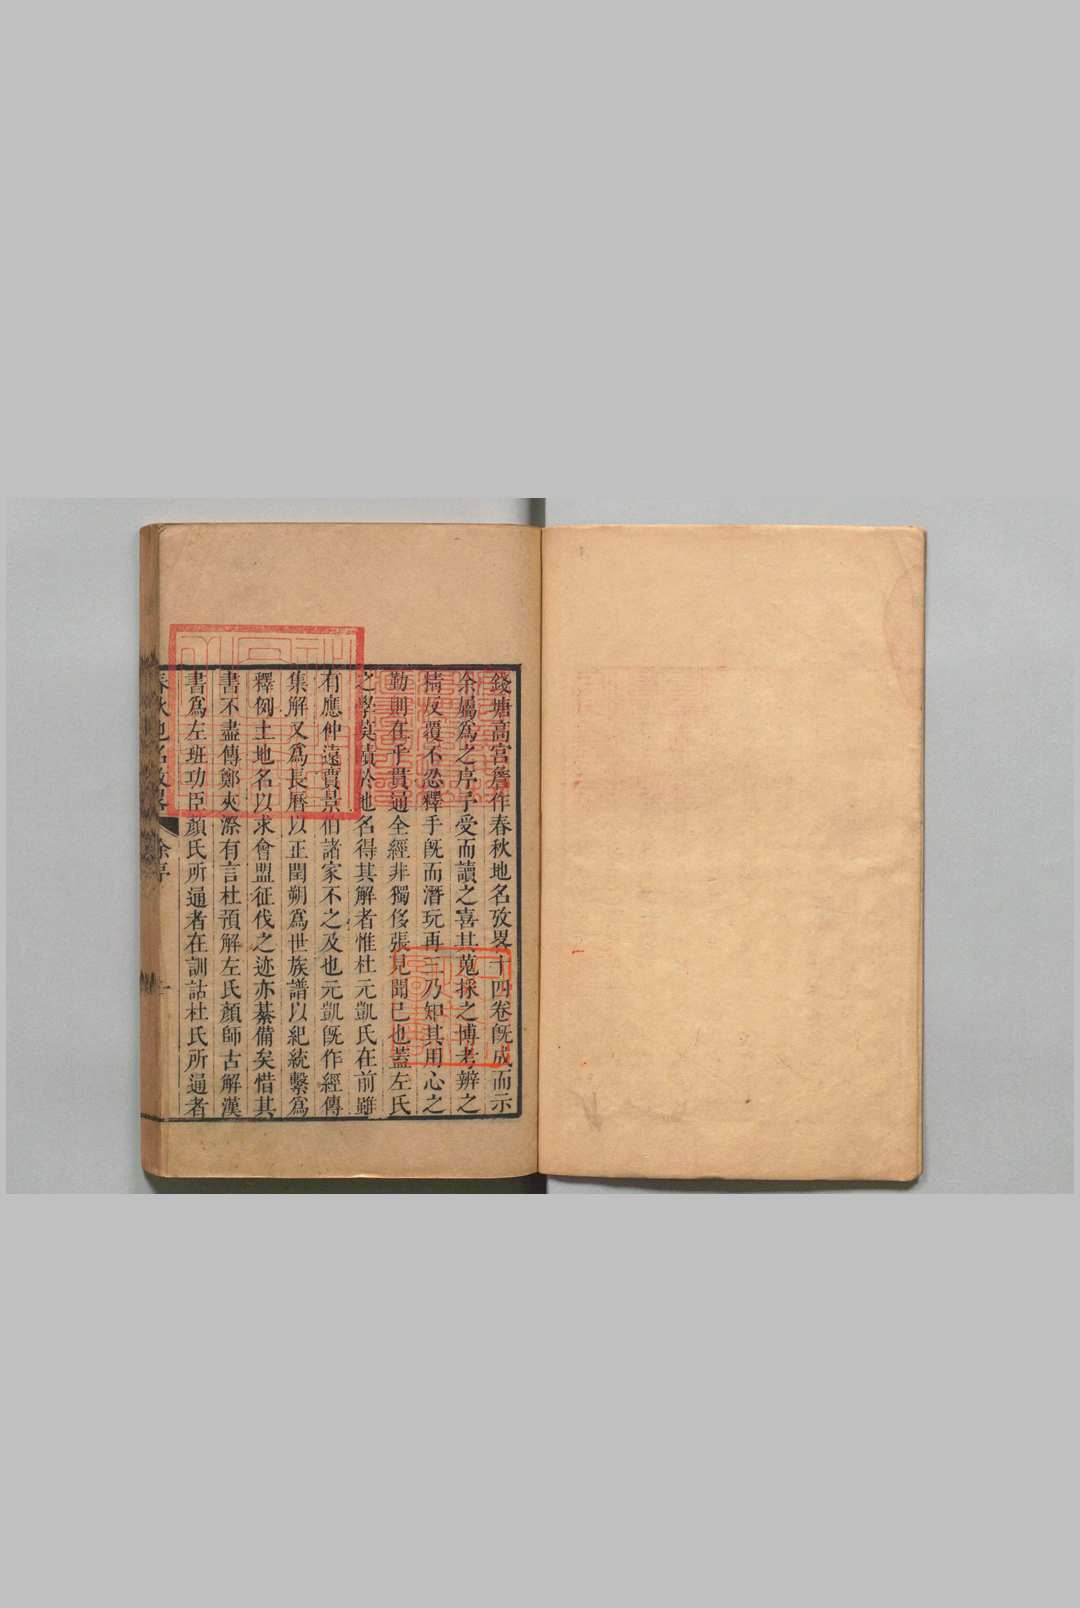 錢塘高宮詹作春秋地名攷畧十四卷旣成而示
余屬爲之序予受而讀之喜其蒐採之博考辨之
精反覆不忍釋手旣而潛玩再三乃知其用心之
勤則在乎貫通全經非獨侈張見聞已也蓋左氏
之學莫賾於地名得其解者惟杜元凱氏在前雖
有應仲遠賈景伯諸家不之及也元凱旣作經傳
集解又爲長曆以正閏朔爲世族譜以紀統繫爲
釋例土地名以求會盟征伐之迹亦綦備矣惜其
書不盡傳鄭夾漈有言杜預解左氏顏師古解漢
書爲左班功臣顏氏所通者在訓詁杜氏所通者
春秋地名攷畧 徐序 一